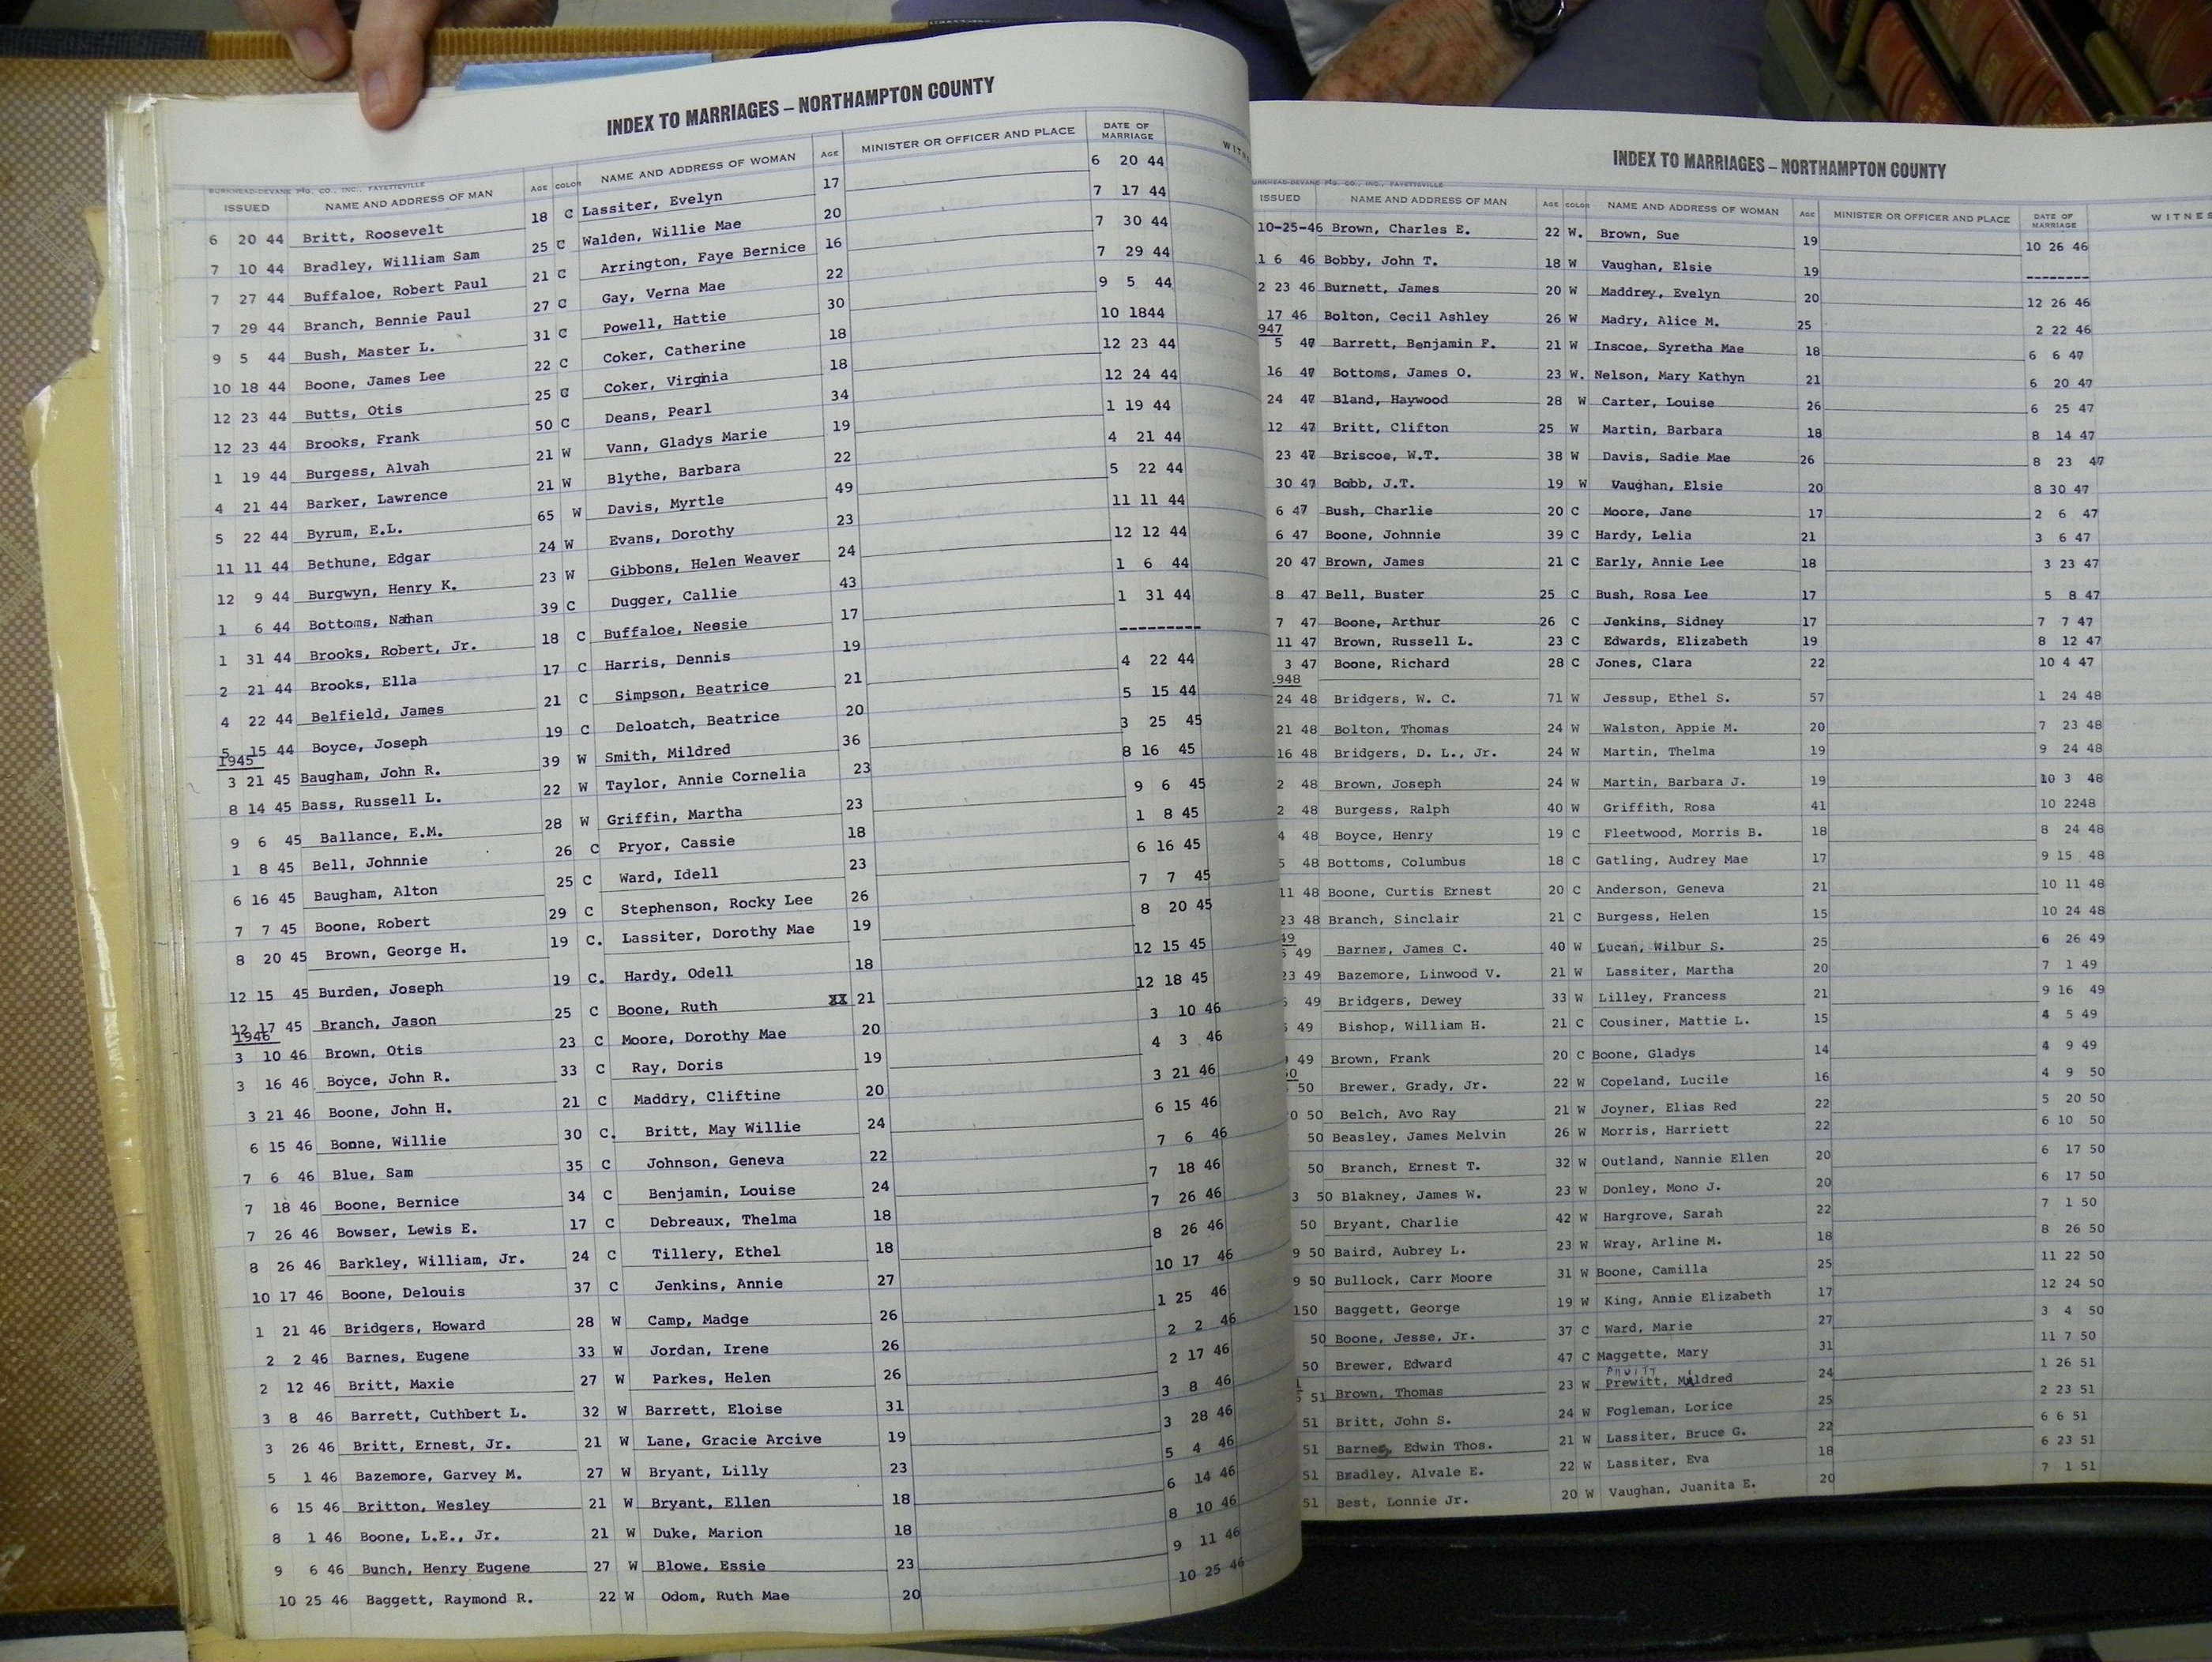 INDEX TO MARRIAGES – NORTHAMPTON COUNTY
BURKHEAD-DEVANE P'tg. CO., INC., FAYETTEVILLE
ISSUED NAME AND ADDRESS OF MAN AGE COLOR NAME AND ADDRESS OF WOMAN AGE MINISTER OR OFFICER AND PLACE DATE OF MARRIAGE
6 20 44 Britt, Roosevelt 18 C Lassiter, Evelyn 17 6 20 44
7 10 44 Bradley, William Sam 25 C Walden, Willie Mae 20 7 17 44
7 27 44 Buffaloe, Robert Paul 21 C Arrington, Faye Bernice 16 7 30 44
7 29 44 Branch, Bennie Paul 27 C Gay, Verna Mae 22 7 29 44
9 5 44 Bush, Master L. 31 C Powell, Hattie 30 9 5 44
10 18 44 Boone, James Lee 22 C Coker, Catherine 18 10 1844
12 23 44 Butts, Otis 25 C Coker, Virginia 18 12 23 44
12 23 44 Brooks, Frank 50 C Deans, Pearl 34 12 24 44
1 19 44 Burgess, Alvah 21 W Vann, Gladys Marie 19 1 19 44
4 21 44 Barker, Lawrence 21 W Blythe, Barbara 22 4 21 44
5 22 44 Byrum, E.L. 65 W Davis, Myrtle 49 5 22 44
11 11 44 Bethune, Edgar 24 W Evans, Dorothy 23 11 11 44
12 9 44 Burgwyn, Henry K. 23 W Gibbons, Helen Weaver 24 12 12 44
1 6 44 Bottoms, Nathan 39 C Dugger, Callie 43 1 6 44
1 31 44 Brooks, Robert, Jr. 18 C Buffaloe, Neesie 17 1 31 44
2 21 44 Brooks, Ella 17 C Harris, Dennis 19 ---------
4 22 44 Belfield, James 21 C Simpson, Beatrice 21 4 22 44
5 15 44 Boyce, Joseph 19 C Deloatch, Beatrice 20 5 15 44
1945
3 21 45 Baugham, John R. 39 W Smith, Mildred 36 3 25 45
8 14 45 Bass, Russell L. 22 W Taylor, Annie Cornelia 23 8 16 45
9 6 45 Ballance, E.M. 28 W Griffin, Martha 23 9 6 45
1 8 45 Bell, Johnnie 26 C Pryor, Cassie 18 1 8 45
6 16 45 Baugham, Alton 25 C Ward, Idell 23 6 16 45
7 7 45 Boone, Robert 29 C Stephenson, Rocky Lee 26 7 7 45
8 20 45 Brown, George H. 19 C. Lassiter, Dorothy Mae 19 8 20 45
12 15 45 Burden, Joseph 19 C. Hardy, Odell 18 12 15 45
12 17 45 Branch, Jason 25 C Boone, Ruth XX 21 12 18 45
1946
3 10 46 Brown, Otis 23 C Moore, Dorothy Mae 20 3 10 46
3 16 46 Boyce, John R. 33 C Ray, Doris 19 4 3 46
3 21 46 Boone, John H. 21 C Maddry, Cliftine 20 3 21 46
6 15 46 Boone, Willie 30 C. Britt, May Willie 24 6 15 46
7 6 46 Blue, Sam 35 C Johnson, Geneva 22 7 6 46
7 18 46 Boone, Bernice 34 C Benjamin, Louise 24 7 18 46
7 26 46 Bowser, Lewis E. 17 C Debreaux, Thelma 18 7 26 46
8 26 46 Barkley, William, Jr. 24 C Tillery, Ethel 18 8 26 46
10 17 46 Boone, Delouis 37 C Jenkins, Annie 27 10 17 46
1 21 46 Bridgers, Howard 28 W Camp, Madge 26 1 25 46
2 2 46 Barnes, Eugene 33 W Jordan, Irene 26 2 2 46
2 12 46 Britt, Maxie 27 W Parkes, Helen 26 2 17 46
3 8 46 Barrett, Cuthbert L. 32 W Barrett, Eloise 31 3 8 46
3 26 46 Britt, Ernest, Jr. 21 W Lane, Gracie Arcive 19 3 28 46
5 1 46 Bazemore, Garvey M. 27 W Bryant, Lilly 23 5 4 46
6 15 46 Britton, Wesley 21 W Bryant, Ellen 18 6 14 46
8 1 46 Boone, L.E., Jr. 21 W Duke, Marion 18 8 10 46
9 6 46 Bunch, Henry Eugene 27 W Blowe, Essie 23 9 11 46
10 25 46 Baggett, Raymond R. 22 W Odom, Ruth Mae 20 10 25 46
INDEX TO MARRIAGES – NORTHAMPTON COUNTY
BURKHEAD-DEVANE P'tg. CO., INC., FAYETTEVILLE
ISSUED NAME AND ADDRESS OF MAN AGE COLOR NAME AND ADDRESS OF WOMAN AGE MINISTER OR OFFICER AND PLACE DATE OF MARRIAGE WITNES
10-25-46 Brown, Charles E. 22 W. Brown, Sue 19 10 26 46
1 6 46 Bobby, John T. 18 W Vaughan, Elsie 19 --------
2 23 46 Burnett, James 20 W Maddrey, Evelyn 20 12 26 46
17 46 Bolton, Cecil Ashley 26 W Madry, Alice M. 25 2 22 46
947
5 47 Barrett, Benjamin F. 21 W Inscoe, Syretha Mae 18 6 6 47
16 47 Bottoms, James O. 23 W. Nelson, Mary Kathyn 21 6 20 47
24 47 Bland, Haywood 28 W Carter, Louise 26 6 25 47
12 47 Britt, Clifton 25 W Martin, Barbara 18 8 14 47
23 47 Briscoe, W.T. 38 W Davis, Sadie Mae 26 8 23 47
30 47 Babb, J.T. 19 W Vaughan, Elsie 20 8 30 47
6 47 Bush, Charlie 20 C Moore, Jane 17 2 6 47
6 47 Boone, Johnnie 39 C Hardy, Lelia 21 3 6 47
20 47 Brown, James 21 C Early, Annie Lee 18 3 23 47
8 47 Bell, Buster 25 C Bush, Rosa Lee 17 5 8 47
7 47 Boone, Arthur 26 C Jenkins, Sidney 17 7 7 47
11 47 Brown, Russell L. 23 C Edwards, Elizabeth 19 8 12 47
3 47 Boone, Richard 28 C Jones, Clara 22 10 4 47
1948
24 48 Bridgers, W. C. 71 W Jessup, Ethel S. 57 1 24 48
21 48 Bolton, Thomas 24 W Walston, Appie M. 20 7 23 48
16 48 Bridgers, D. L., Jr. 24 W Martin, Thelma 19 9 24 48
2 48 Brown, Joseph 24 W Martin, Barbara J. 19 10 3 48
2 48 Burgess, Ralph 40 W Griffith, Rosa 41 10 2248
4 48 Boyce, Henry 19 C Fleetwood, Morris B. 18 8 24 48
5 48 Bottoms, Columbus 18 C Gatling, Audrey Mae 17 9 15 48
11 48 Boone, Curtis Ernest 20 C Anderson, Geneva 21 10 11 48
23 48 Branch, Sinclair 21 C Burgess, Helen 15 10 24 48
49
49 Barnes, James C. 40 W Lucan, Wilbur S. 25 6 26 49
23 49 Bazemore, Linwood V. 21 W Lassiter, Martha 20 7 1 49
49 Bridgers, Dewey 33 W Lilley, Francess 21 9 16 49
49 Bishop, William H. 21 C Cousiner, Mattie L. 15 4 5 49
49 Brown, Frank 20 C Boone, Gladys 14 4 9 49
50
50 Brewer, Grady, Jr. 22 W Copeland, Lucile 16 4 9 50
0 50 Belch, Avo Ray 21 W Joyner, Elias Red 22 5 20 50
50 Beasley, James Melvin 26 W Morris, Harriett 22 6 10 50
50 Branch, Ernest T. 32 W Outland, Nannie Ellen 20 6 17 50
3 50 Blakney, James W. 23 W Donley, Mono J. 20 6 17 50
50 Bryant, Charlie 42 W Hargrove, Sarah 22 7 1 50
9 50 Baird, Aubrey L. 23 W Wray, Arline M. 18 8 26 50
9 50 Bullock, Carr Moore 31 W Boone, Camilla 25 11 22 50
150 Baggett, George 19 W King, Annie Elizabeth 17 12 24 50
50 Boone, Jesse, Jr. 37 C Ward, Marie 27 3 4 50
50 Brewer, Edward 47 C Maggette, Mary 31 11 7 50
51 Brown, Thomas 23 W Prewitt, Mildred 24 1 26 51
51 Britt, John S. 24 W Fogleman, Lorice 25 2 23 51
51 Barnes, Edwin Thos. 21 W Lassiter, Bruce G. 22 6 6 51
51 Bradley, Alvale E. 22 W Lassiter, Eva 18 6 23 51
51 Best, Lonnie Jr. 20 W Vaughan, Juanita E. 20 7 1 51